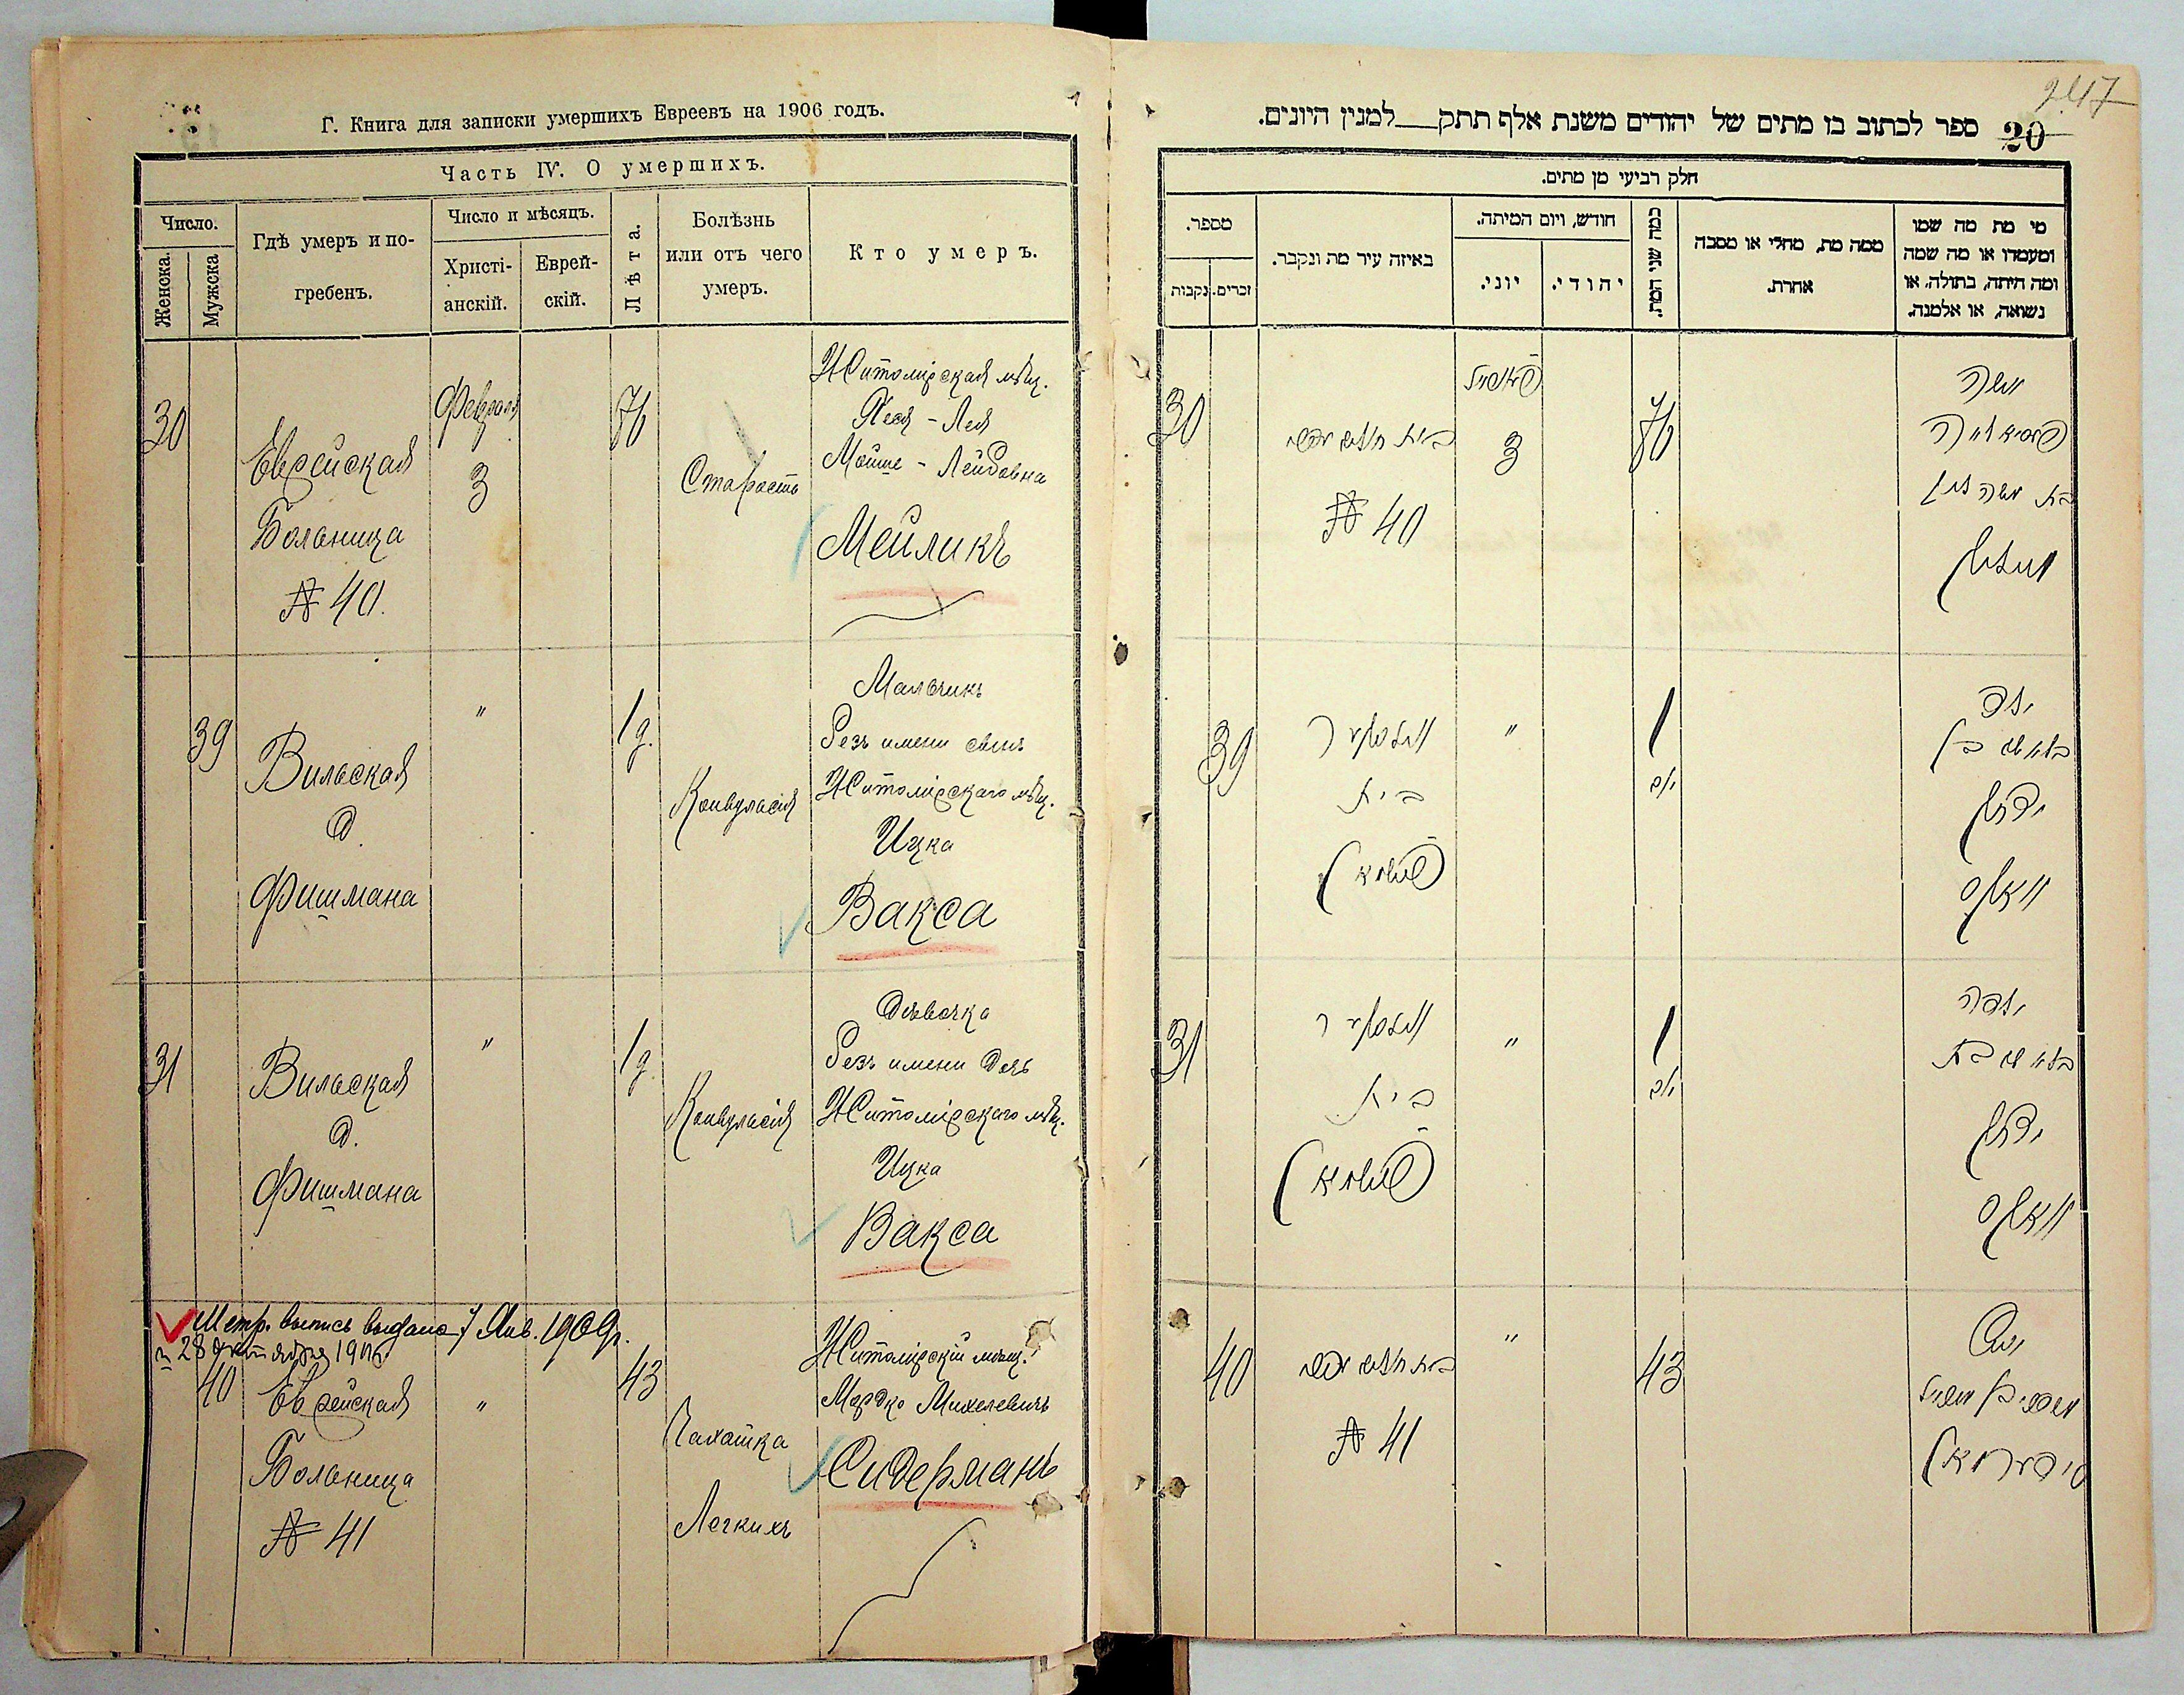 Г. Книга для записки умершихъ Евреевъ на 1906 годъ.
Часть IV. О умершихъ.
Число.
Женска.
Мужска
Гдѣ умеръ и по-
гребенъ.
Число и мѣсяцъ.
Христі-
анскій.
Еврей-
скій.
Лѣта.
Болѣзнь
или отъ чего
умеръ.
Кто умеръ.
30
Еврейская
Больница
№ 40.
Февраля
3
76
Старость
Житомірская мѣщ.
Песя - Лея
Мойше - Лейбовна
Мейликъ
39
Вильская
д.
Фишмана
"
1 д.
Конвульсія
Мальчикъ
безъ имени сынъ
Житомірскаго мѣщ.
Ицка
Вакса
31
Вильская
д.
Фишмана
"
1 д.
Конвульсія
Дѣвочка
безъ имени дочь
Житомірскаго мѣщ.
Ицка
Вакса
Метр. выпись выдана 7 Янв. 1909 г.
и 28 октября 19
40
Еврейская
Больница
№ 41
"
43
Чахотка
Легкихъ
Житомірскій мѣщ.
Мордко Михелевичъ
Сидерманъ
247
20
ספר לכתוב בו מתים של יהודים משנת אלף תתק למנין היונים.
חלק רביעי מן מתים.
מי מת מה שמו
ומעמדו או מה שמה
ומה היתה, בתולה, או
נשואה, או אלמנה.
ממה מת, מחלי או מסבה
אחרת.
כמה שני המת.
חודש, ויום המיתה.
יהודי.
יוני.
באיזה עיר מת ונקבר.
מספר.
זכרים.
נקבות
30
בית
№ 40
3
76
39
בית
פישמאן
"
1
יום
ילד
בלי שם בן
יצחק
וואקס
31
בית
פישמאן
"
1
יום
ילדה
בלי שם בת
יצחק
וואקס
40
בית
№ 41
"
43
איש
סידערמאן